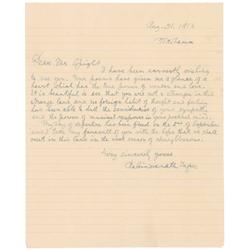 Aug. 31. 1912
Dear Mr Wright
I have been earnestly wishing
to see you. Your poems have given me a glimpse of a
heart which has the true power of wonder and love.
It is beautiful to see that you are not a stranger in this
strange land and no foreign habit of thought and feeling
has been able to dull the sensitiveness of your sympathy
and the power of musical response in your poetical mind.
My day of departure has been fixed on the 2nd of September
and I take my farewell of you with the hope that we shall
meet in this land in the next season of cherry blossoms.
Very sincerely yours
Rabindranath Tagore